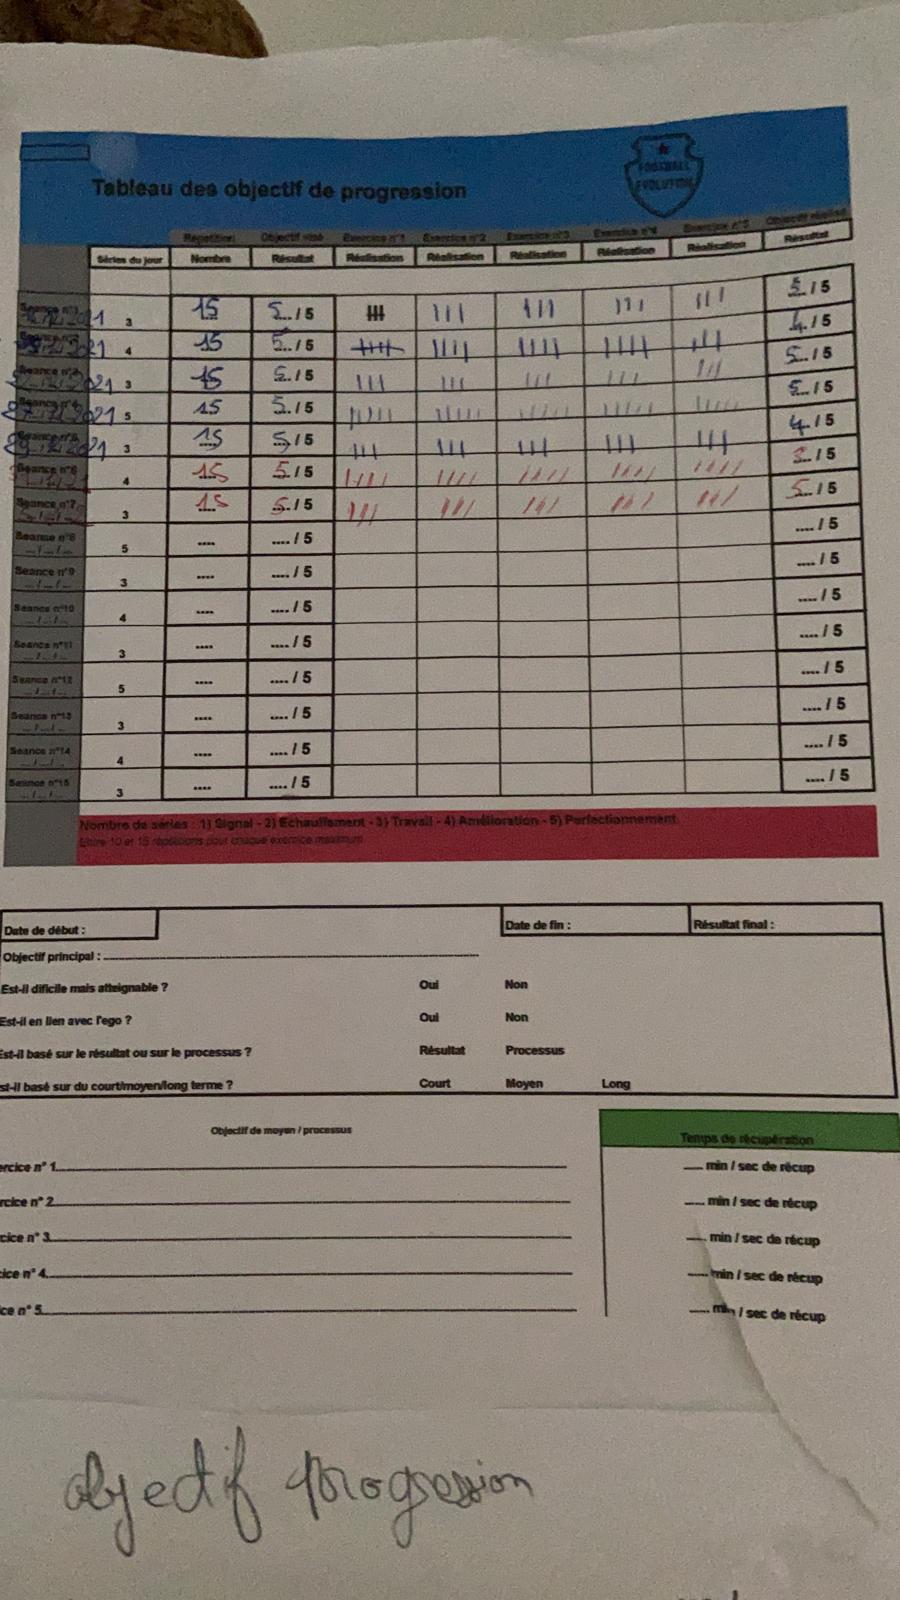 FOOTBALL
EVOLUTION
Tableau des objectif de progression
Répétition Objectif visé Exercice n°1 Exercice n°2 Exercice n°3 Exercice n°4 Exercice n°5 Objectif réalisé
Séries du jour Nombre Résultat Réalisation Réalisation Réalisation Réalisation Réalisation Résultat
3 15 5../5 III III III III III 5../5
4 15 5../5 IIII IIII IIII III 4../5
3 15 5../5 III III III III III 5../5
5 15 5./5 IIIII IIIII IIIII IIIII IIIII 5./5
3 15 5/5 III III III III III 4./5
Seance n°6 4 15 5./5 IIII IIII IIII IIII IIII /5
Seance n°7 3 15 5./5 III III III III III 5../5
Seance n°8 5 .... ..../5 ..../5
Seance n°9 3 .... ..../5 ..../5
Seance n°10 4 .... ..../5 ..../5
Seance n°11 3 .... ..../5 ..../5
Seance n°12 5 .... ..../5 ..../5
Seance n°13 3 .... ..../5 ..../5
Seance n°14 4 .... ..../5 ..../5
Seance n°15 3 .... ..../5 ..../5
Nombre de séries : 1) Signal - 2) Echauffement - 3) Travail - 4) Amélioration - 5) Perfectionnement
Entre 10 et 15 répétitions pour chaque exercice maximum
Date de début : Date de fin : Résultat final :
Objectif principal :
Est-il dificile mais atteignable ? Oui Non
Est-il en lien avec l'ego ? Oui Non
Est-il basé sur le résultat ou sur le processus ? Résultat Processus
st-il basé sur du court/moyen/long terme ? Court Moyen Long
Objectif de moyen / processus Temps de récupération
ercice n° 1 min / sec de récup
rcice n° 2 min / sec de récup
cice n° 3 min / sec de récup
ice n° 4 min / sec de récup
ce n° 5 min / sec de récup
objectif progression